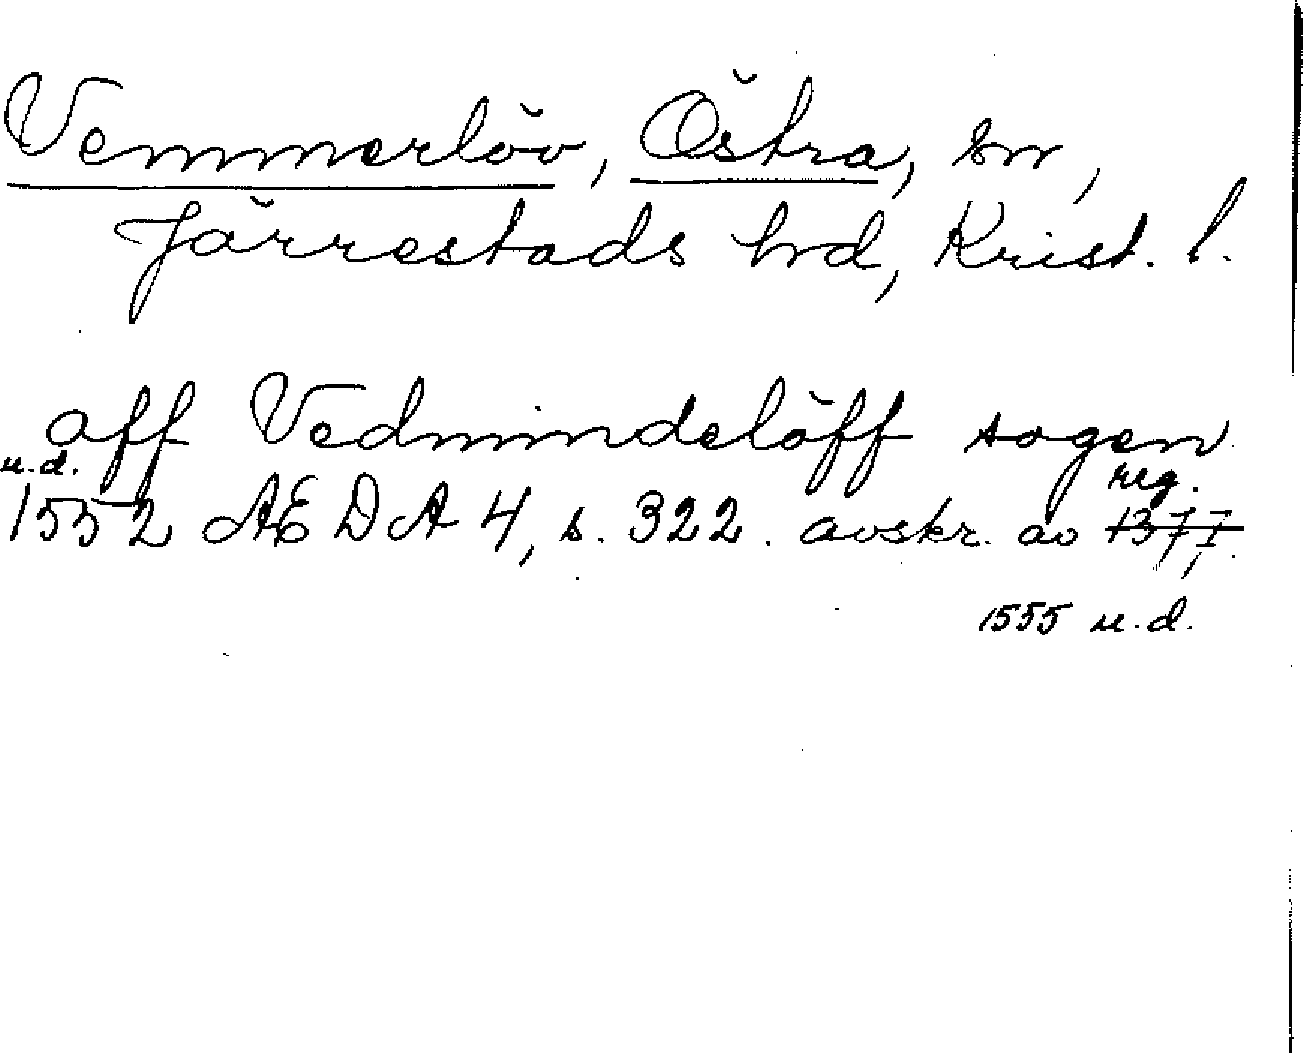 Vemmerlöv, Östra, sn,
Järrestads hrd, Krist. l.
aff Vedmindelöff sogen
u.d. reg.
1552 AEDA 4, s. 322. avskr. av 1377
1555 u.d.